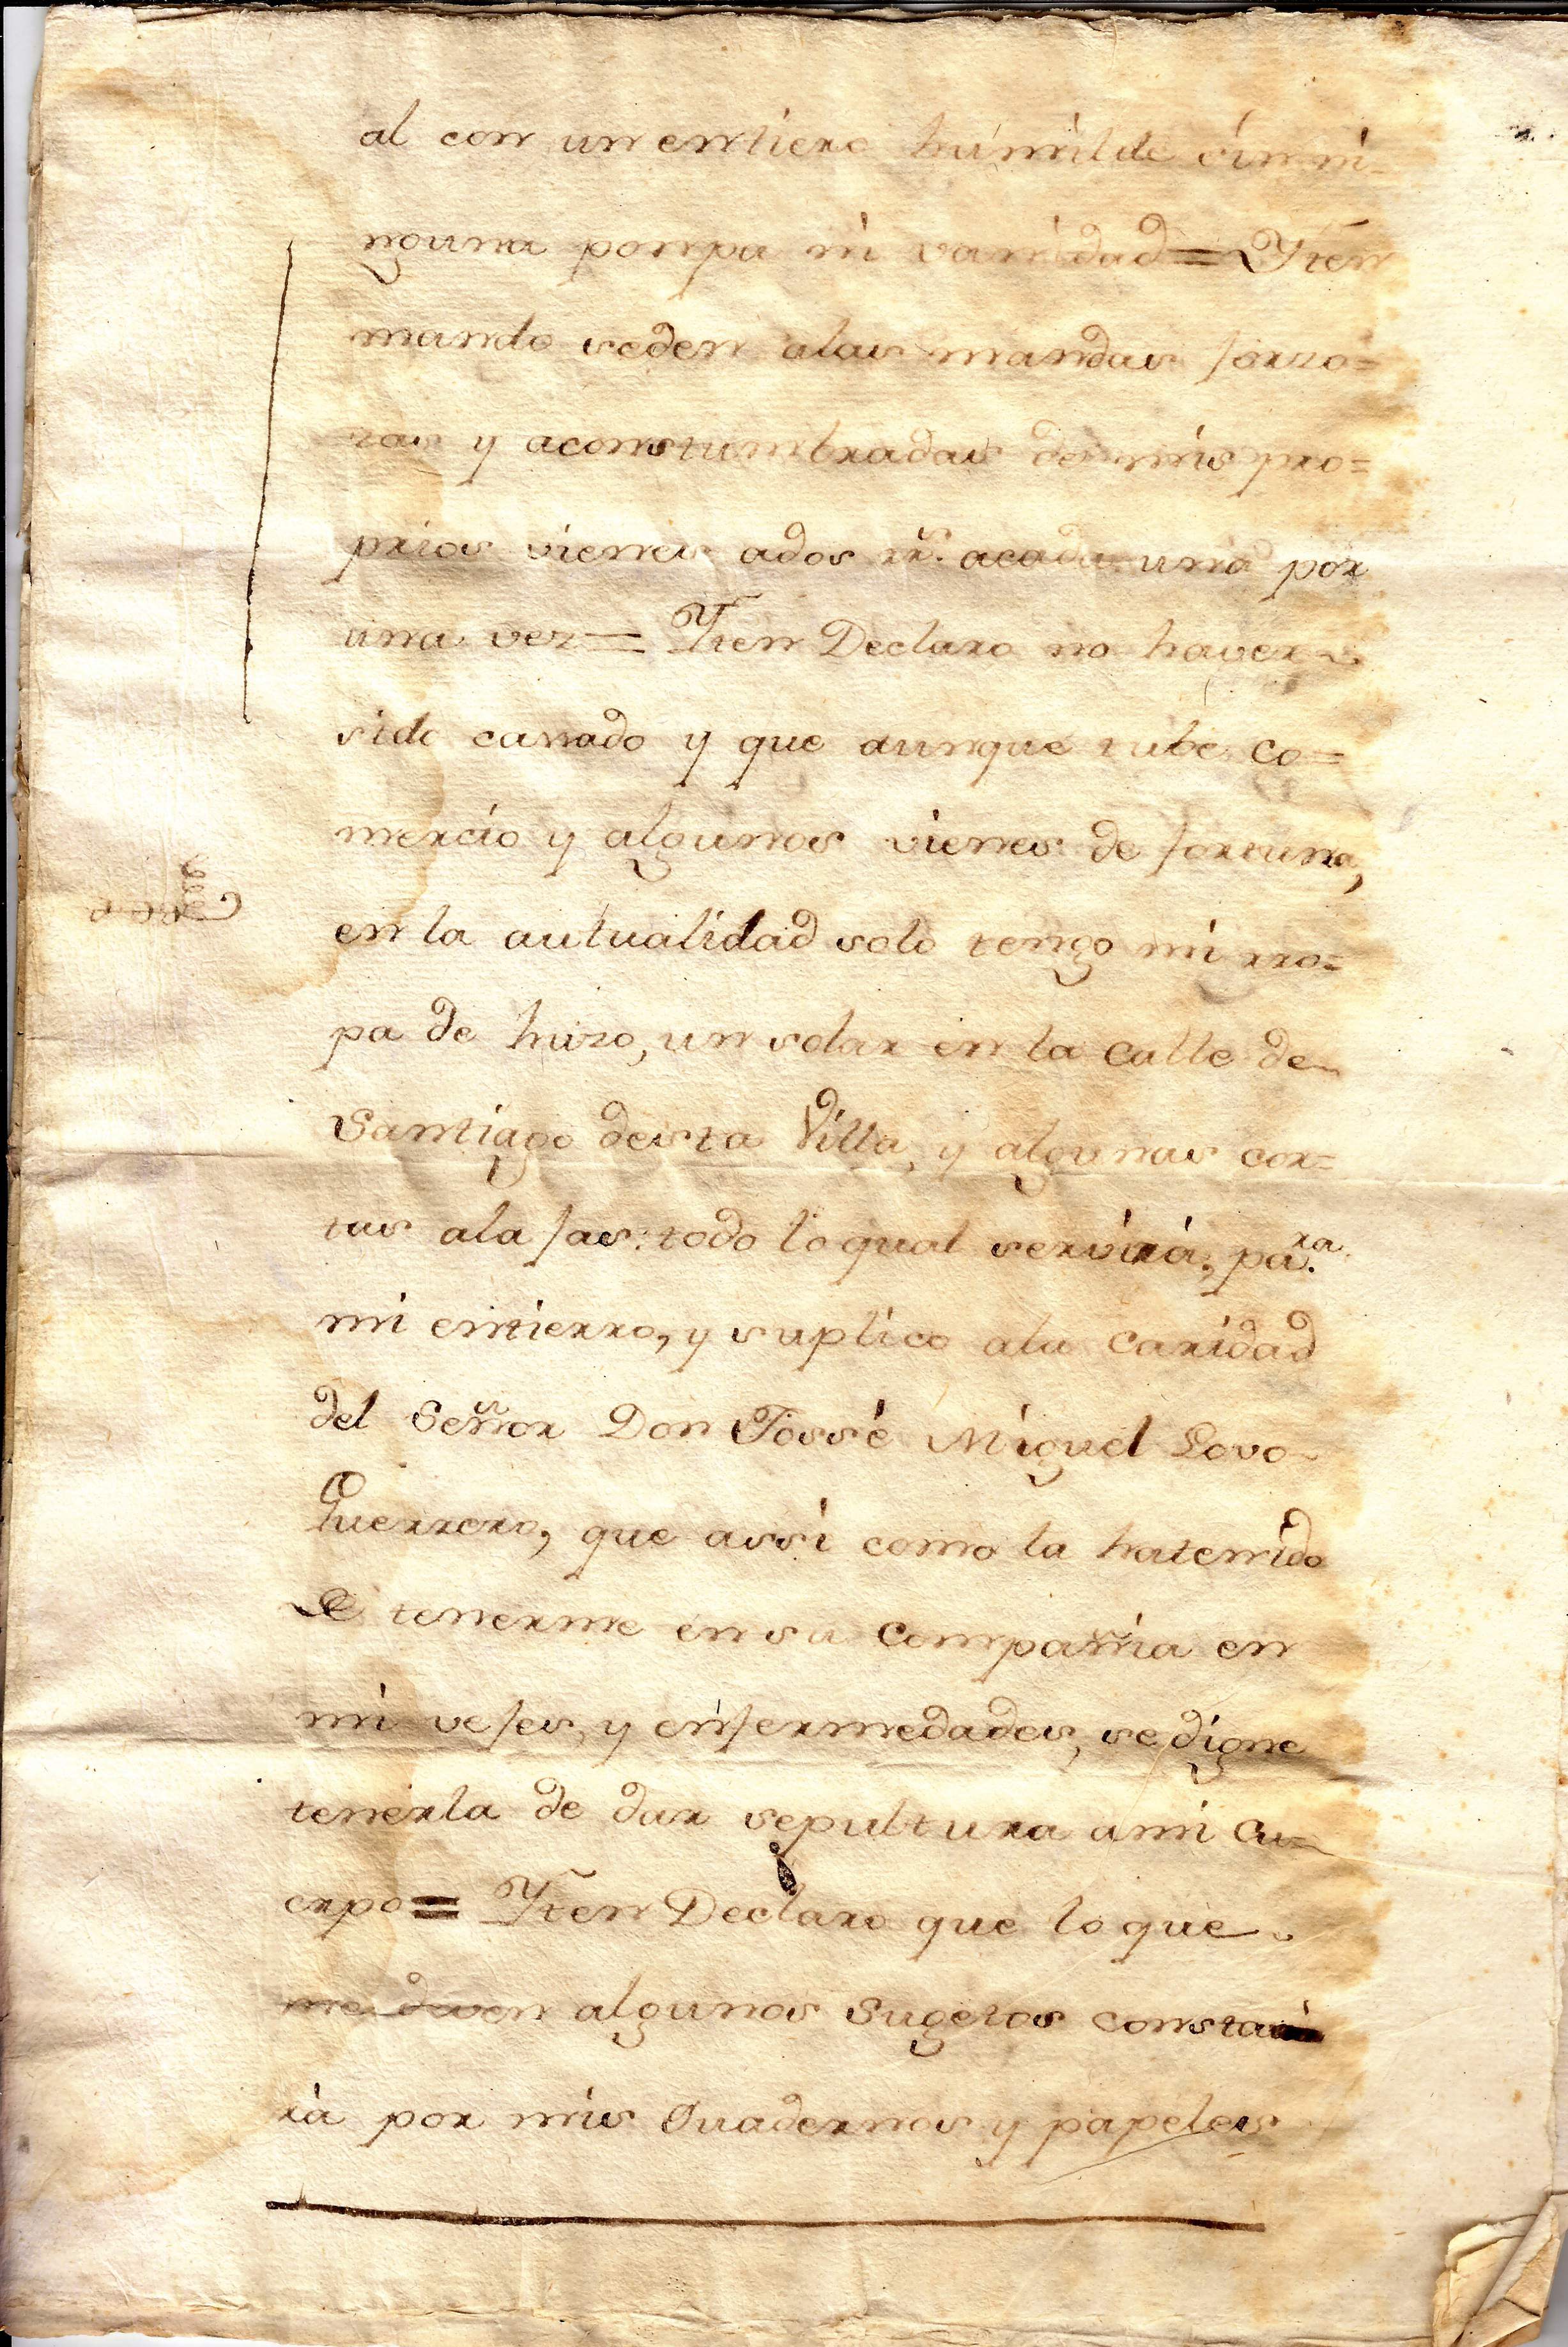 al con un entiero húmilde sin ni-
nguna pompa ni vanidad = Yten
mando se den alas mandas forzo=
zas y aconstumbradas de mis pro=
prios vienes ados rr.s acada una por
una vez = Yten Declaro no haver
sido cassado y que aunque tube co=
mercio y algunos vienes de fortuna,
en la autualidad solo tengo mi rro=
pa de huzo, un solar en la Calle de
Santiago desta Villa, y algunas cor=
tas alafas: todo lo qual servirá, pa.ra
mi entierro, y suplico ala Caridad
del Señor Don Jossé Miguel Lovo
Guerrero, que assi como la hatenido
de tenerme en su Compañia en
mi vefes, y enfermedades, se digne
tenerla de dar sepultura ami Cu-
erpo = Yten Declaro que lo que
me deven algunos Sugetos consta
rá por mis Quadernos y papeles